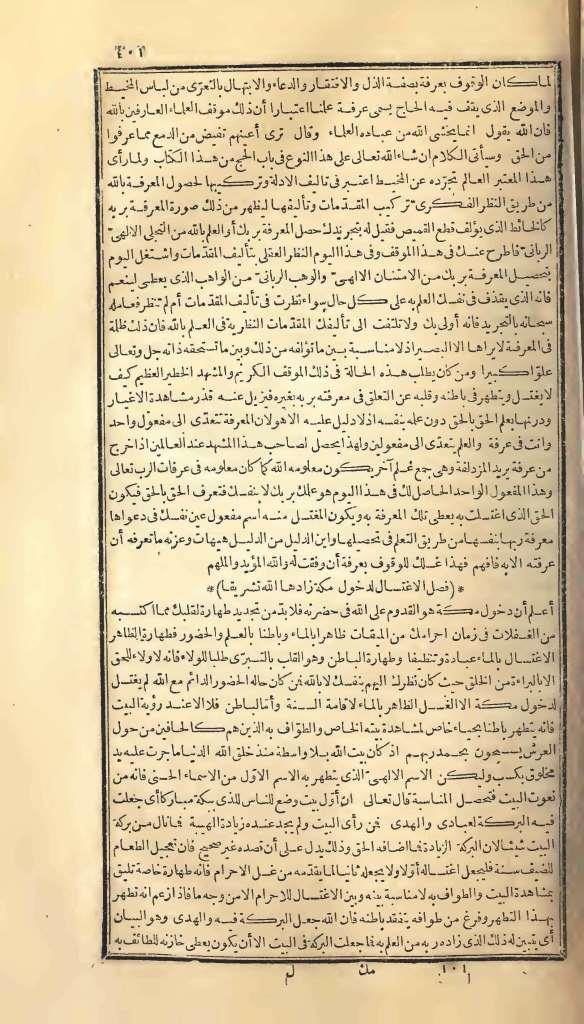 ٤٠٢
لما كان الوقوف بعرفة بصفة الذل والافتقار والدعاء والابتهال بالتعرّى من لباس المخيط
والموضع الذى يقف فيه الحاج يسمى عرفة علمنا اعتبارا أن ذلك موقف العلماء العارفين بالله
فان الله يقول انما يخشى الله من عباده العلماء وقال ترى أعينهم تفيض من الدمع مما عرفوا
من الحق وسيأتى الكلام ان شاء الله تعالى على هذا النوع فى باب الحج من هذا الكتاب ولما رأى
هذا المعتبر العالم تجرّده عن المخيط اعتبر فى تاليف الادلة وتركيبها لحصول المعرفة بالله
من طريق النظر الفكرىّ تركيب المقدّمات وتأليفها ليظهر من ذلك صورة المعرفة بربه
كالخائط الذى يؤلف قطع القميص فقيل له بتجريدك حصل المعرفة بربك أو العلم بالله من التجلى الالهىّ
الربانىّ فاطرح عنك فى هذا الموقف وفى هذا اليوم النظر العقلى بتأليف المقدّمات واشتغل اليوم
بتحصيل المعرفة بربك من الامتنان الالهىّ والوهب الربانىّ من الواهب الذى يعطى لينعم
فانه الذى يقذف فى نفسك العلم به على كل حال سواء نظرت فى تأليف المقدّمات أم لم تنظر فعامله
سبحانه بالتجريد فانه أولى بك ولا تلتفت الى تأليفك المقدّمات النظرية فى العلم بالله فان ذلك ظلة
فى المعرفة لا يراها الا البصير اذ لا مناسبة بين ما تؤلفه من ذلك وبين ما تستحقه ذاته جل وتعالى
علوّا كبيرا ومن كان يطلب هذه الحالة فى ذلك الموقف الكريم والمشهد الخطير العظيم كيف
لا يغتسل ويتطهر فى باطنه وقلبه عن التعلق فى معرفته بربه بغيره فيزيل عنه قذر مشاهدة الاغيار
ودرنها بعلم الحق بالحق دون علمه بنفسه اذ لا دليل عليه الا هو لان المعرفة تتعدّى الى مفعول واحد
وانت فى عرفة والعلم يتعدّى الى مفعولين ولهذا يحصل لصاحب هذا المشهد عند العالمين اذا خرج
من عرفة يريد المزدلفة وهى جمع علم آخر يكون معلومه الله كما كان معلومه فى عرفات الرب تعالى
وهذا المفعول الواحد الحاصل لك فى هذا اليوم هو علمك بربك لا بنفسك فتعرف الحق بالحق فيكون
الحق الذى اغتسلت به يعطى تلك المعرفة به ويكون المغتسل منه اسم مفعول عين نفسك فى دعواها
معرفة ربها بنفسها من طريق التعلم فى تحصيلها واين الدليل من الدليل هيهات وعزته ما تعرفه أن
عرفته الا به فافهم فهذا غسلك للوقوف بعرفة أن وفقت له والله المؤيد والملهم
* (فصل الاغتسال لدخول مكة زادها الله تشريفا) *
أعلم أن دخول مكة هو القدوم على الله فى حضرته فلابدّ من تجديد طهارة لقلبك مما اكتسبه
من الغفلات فى زمان احرامك من الميقات ظاهرا بالماء وباطنا بالعلم والحضور فطهارة الظاهر
الاغتسال بالماء عبادة وتنظيفا وطهارة الباطن وهو القلب بالتبرّى طلبا للولاء فانه لا ولاء للحق
الا بالبراءة من الخلق حيث كان نظرك اليهم بنفسك لا بالله فمن كان حاله الحضور الدائم مع الله لم يغتسل
لدخول مكة الا الغسل الظاهر بالماء لاقامة السنة وأما الباطن فلا الا عند رؤية البيت
فانه يتطهر باطنا بحياء خاص لمشاهدة بيته الخاص والطوّاف به الذين هم كالحافين من حول
العرش يسبحون بحمد ربهم اذ كان بيت الله بلا واسطة منذ خلق الله الدنيا ما جرت عليه يد
مخلوق بكسب وليكن الاسم الالهىّ الذى يتطهر به الاسم الاوّل من الاسماء الحسنى فانه من
نعوت البيت فتحصل المناسبة قال تعالى ان أوّل بيت وضع للناس للذى ببكة مباركا أى جعلت
فيه البركة لعبادى والهدى فمن رأى البيت ولم يجد عنده زيادة الهيبة فما نال من بركة
البيت شيئا لان البركة الزيادة فما اضافه الحق وذلك يدل على أن قصده غير صحيح فان تعجيل الطعام
للضيف سنة فليجعل اغتساله أوّلا ولا يجعله ثانيا لما يقدّمه من غسل الاحرام فانه طهارة خاصة تليق
بمشاهدة البيت والطواف به لا مناسبة بينه وبين الاغتسال للاحرام الا من وجه ما فاذا زعم انه تطهر
بهذا التطهر وفرغ من طوافه يتفقد باطنه فان الله جعل البركة فيه والهدى وهو البيان
أى يتبين له ذلك الذى زاده ربه من العلم به فما جعلت البركة فى البيت الا أن يكون يعطى خازنه للطائف به
١٠١ مك ل